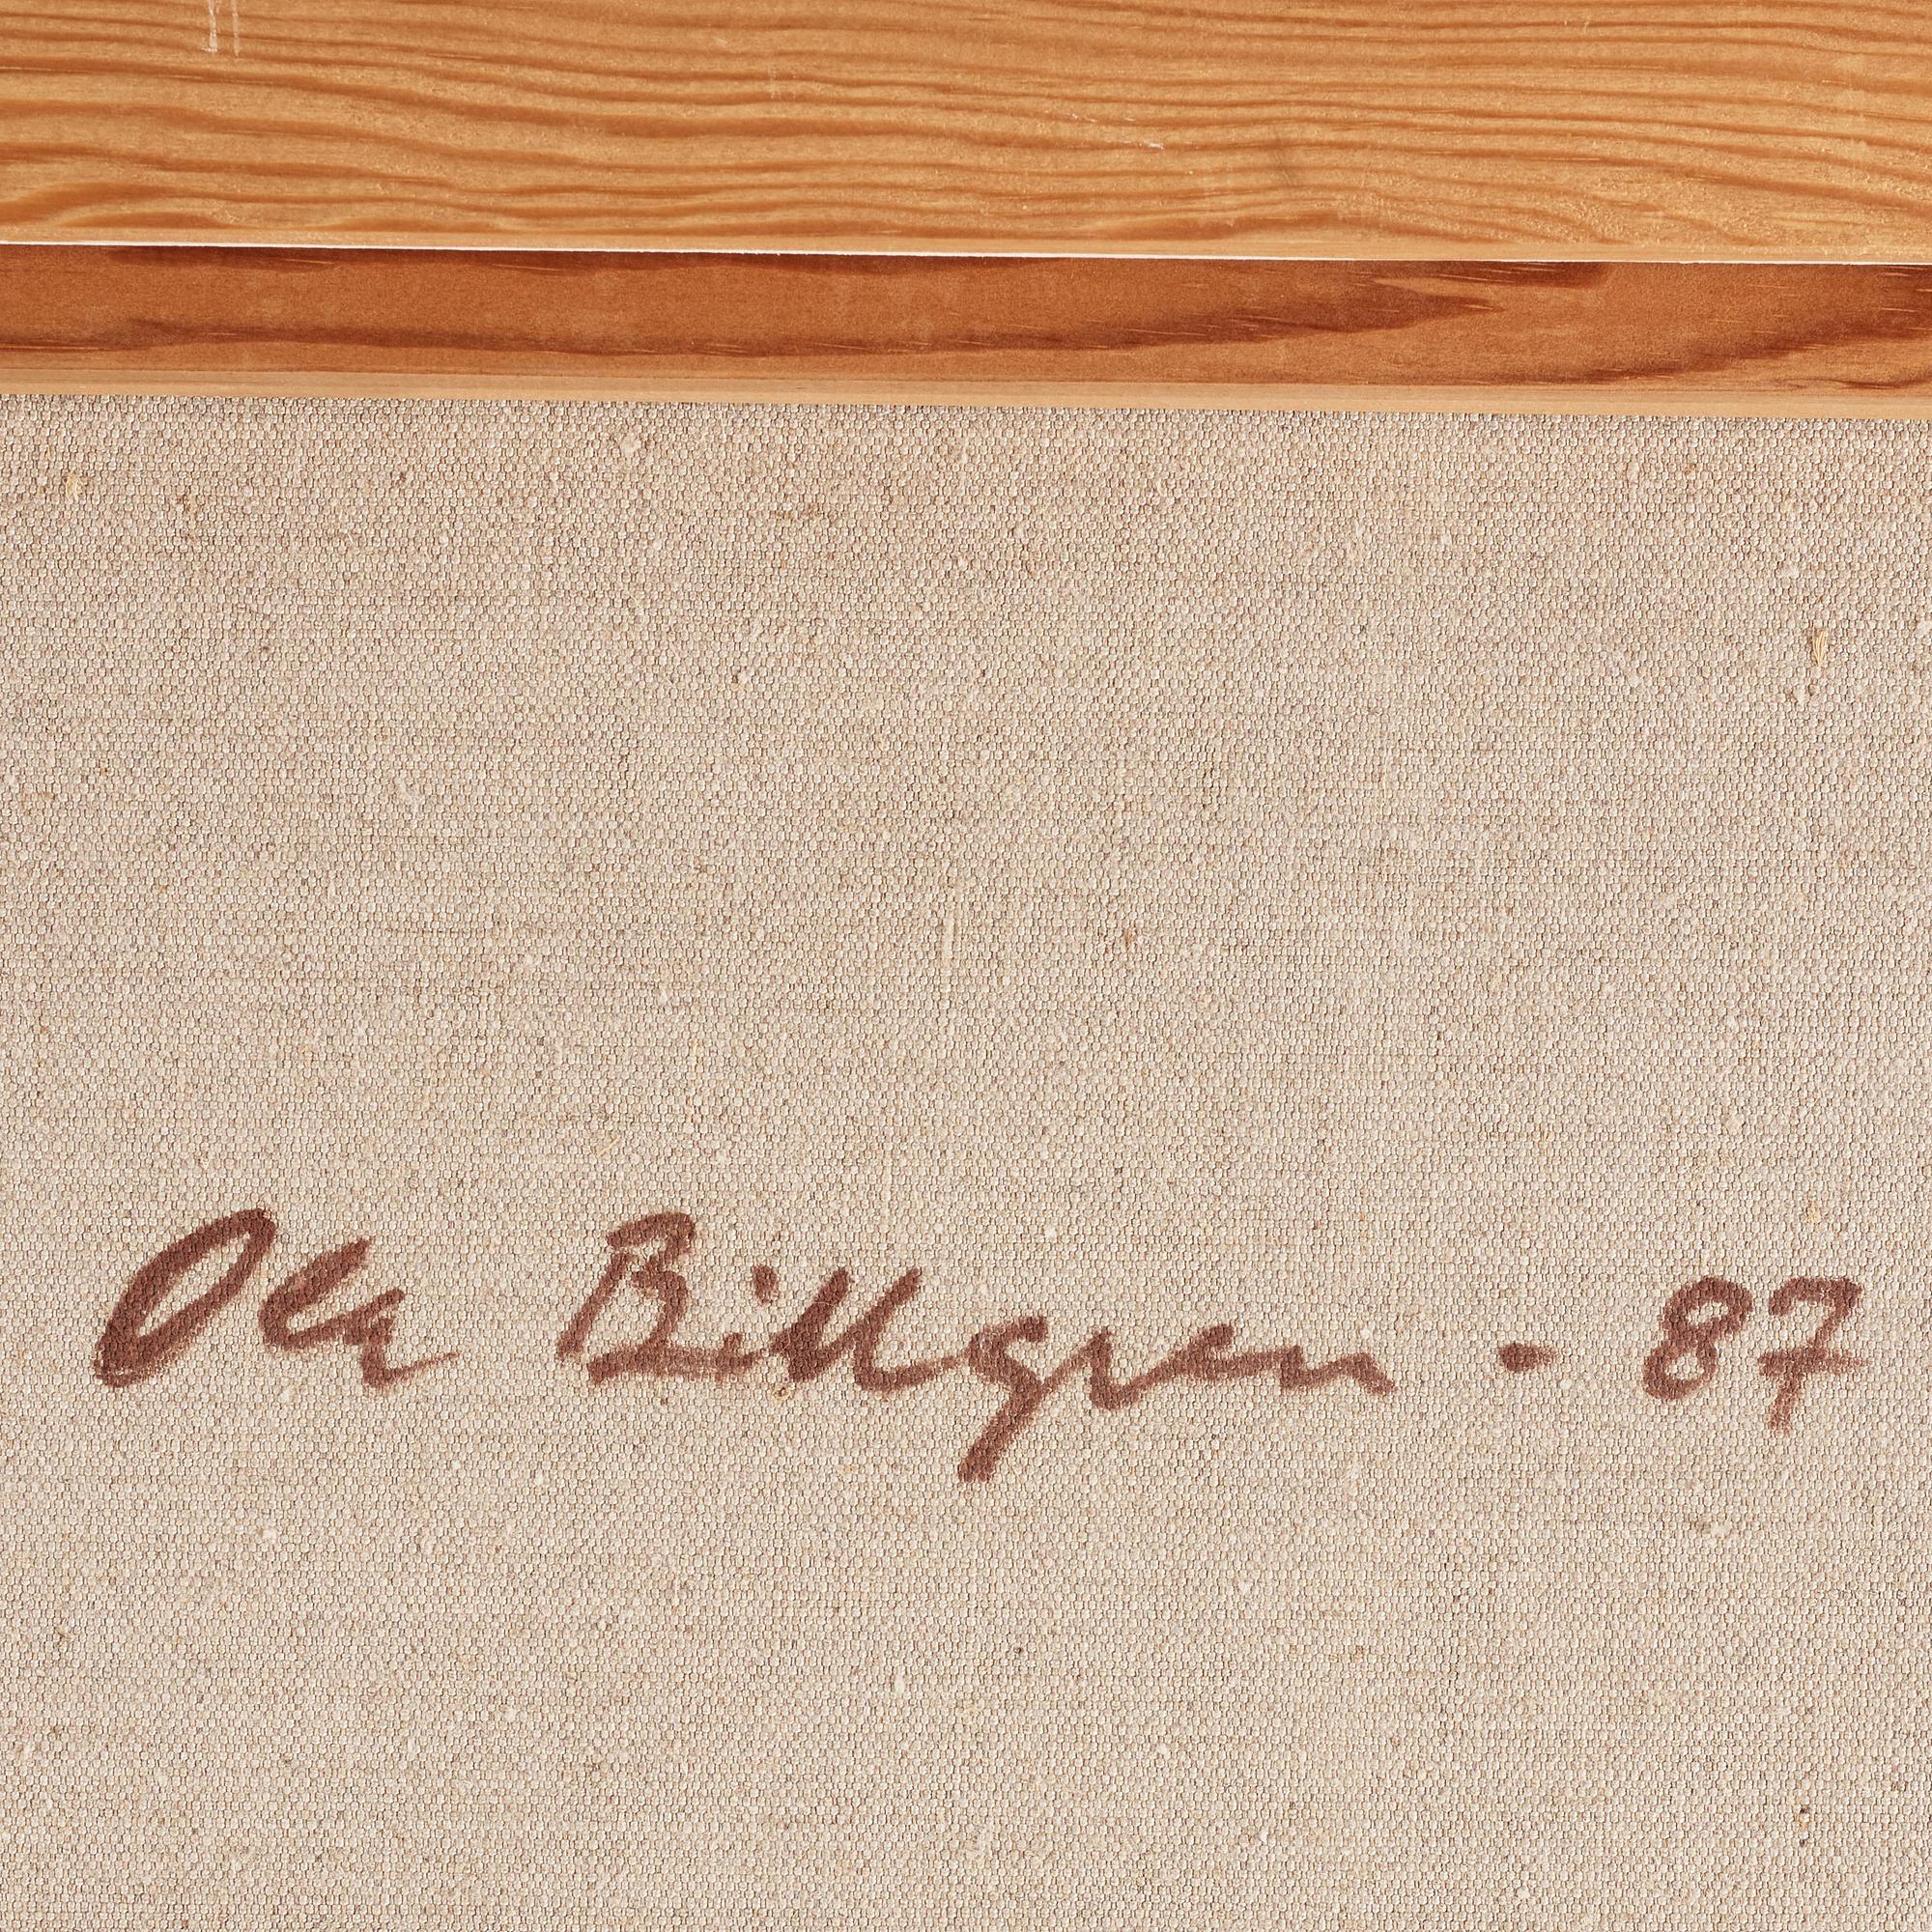 Ola Billgren - 87